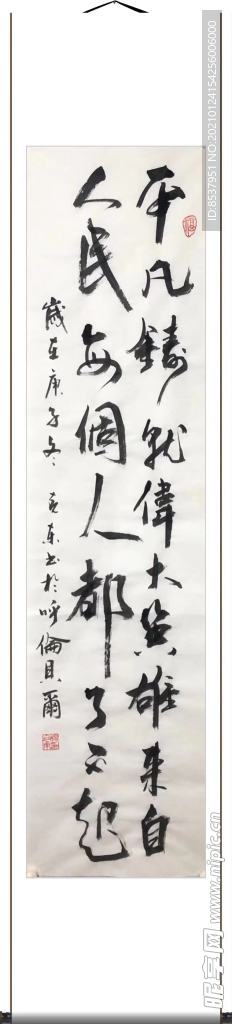 平凡鑄就偉大英雄来自
人民每個人都了不起
歲在庚子冬 東书於呼倫貝爾
ID:8537951 NO:20210124154256006000
昵享网 www.nipic.cn